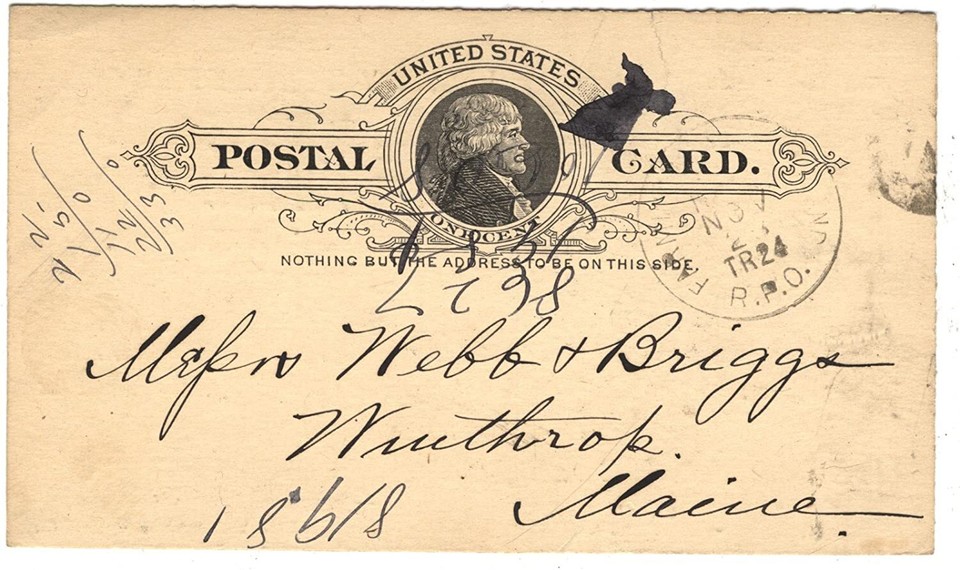 UNITED STATES
POSTAL CARD.
ONE CENT
NOTHING BUT THE ADDRESS TO BE ON THIS SIDE.
NOV
TR 24
R.P.O.
Messrs Webb & Briggs
Winthrop.
Maine